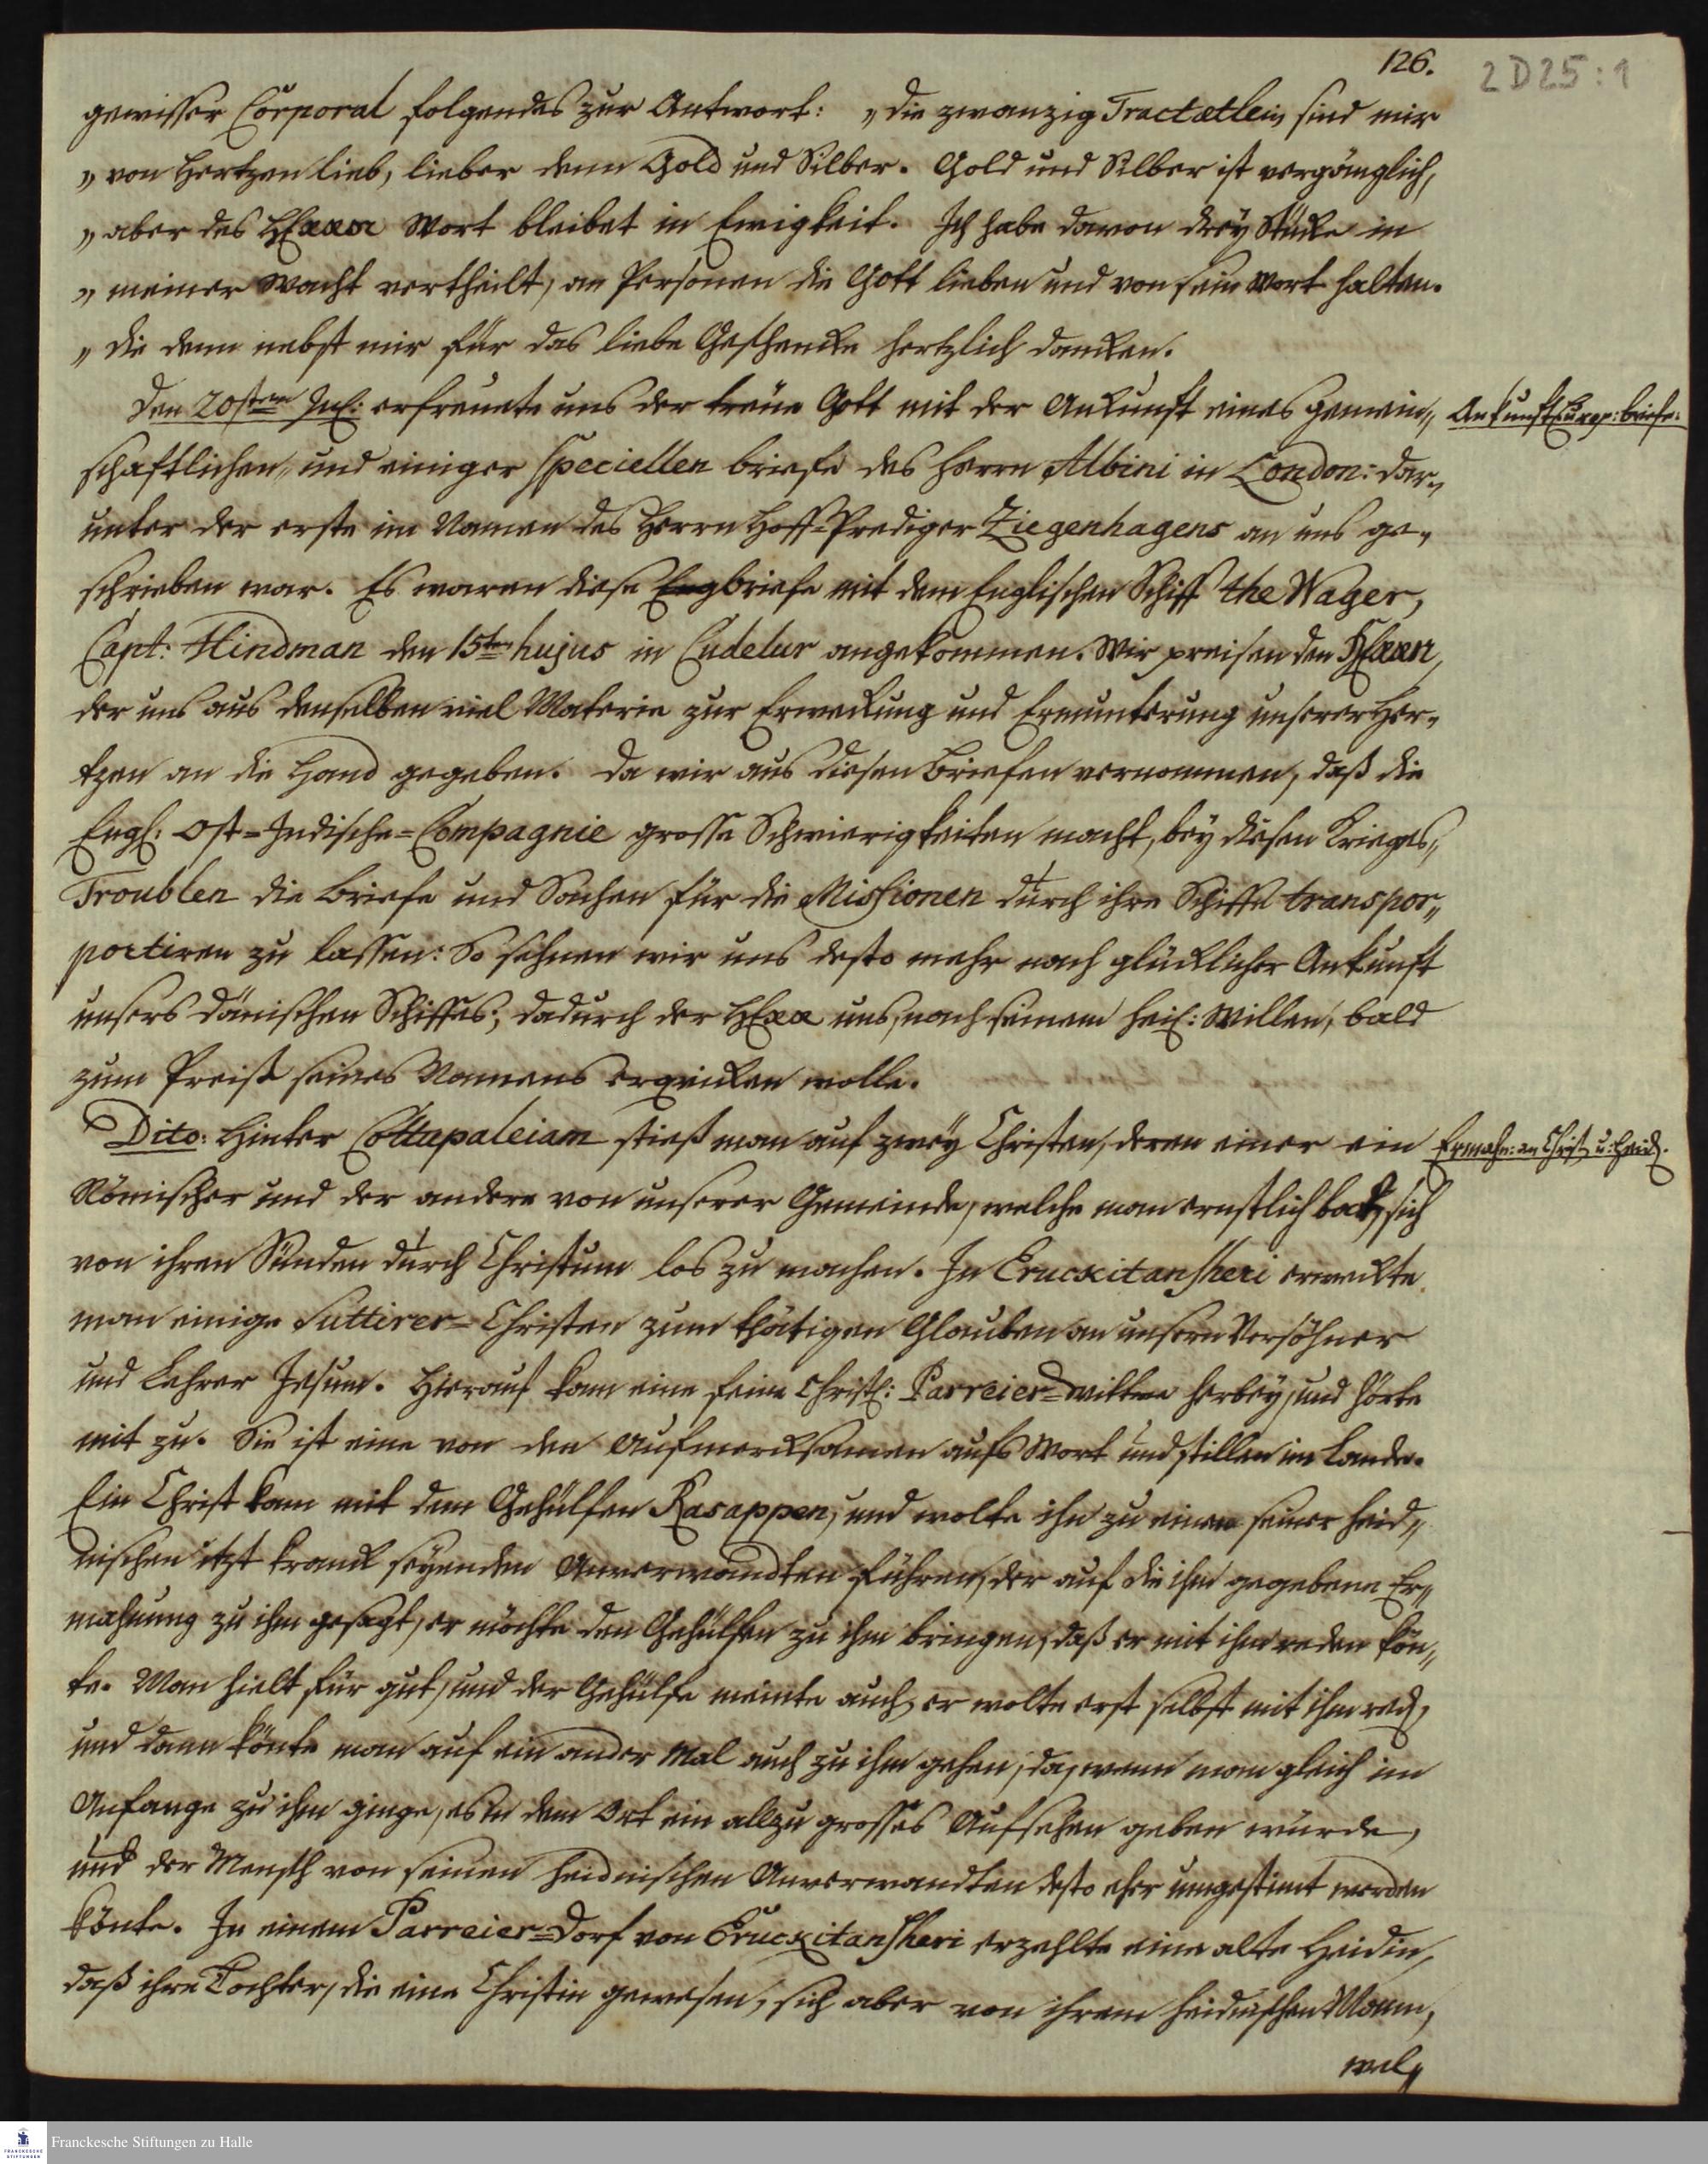 126.
2 D 25 : 1
gewisser Corporal folgendes zur Antwort: „die zwanzig Tractætlein sind mir
„von Hertzen lieb, lieber denn Gold und Silber. Gold und Silber ist vergänglich,
„aber des HErrn Wort bleibet in Ewigkeit. Ich habe davon drey Stücke in
„meiner Wacht vertheilt, an Personen die Gott lieben und von sein Wort halten.
„die denn nebst mir für das liebe Geschencke hertzlich dancken.
Den 20sten Jul: erfreuete uns der treüe Gott mit der Ankunft eines gemein„
Ankunft Europ: briefe.
schaftlichen, und einiger speciellen briefe des Herrn Albini in London: dar„
unter der erste im Namen des Herrn Hoff-Prediger Ziegenhagens an uns ge„
schrieben war. Es waren diese Engbriefe mit dem Englischen Schiff the Wager,
Capt: Hindman den 15ten hujus in Cudelur angekommen. Wir preisen den HErrn,
der uns aus denselben viel Materie zur Erweckung und Ermunterung unserer Her„
tzen an die Hand gegeben. Da wir aus diesen Briefen vernommen, daß die
Engl: Ost-Indische-Compagnie grosse Schwierigkeiten macht, bey diesen Krieges„
Troublen die Briefe und Sachen für die Missionen durch ihre Schiffe transpor„
portiren zu lassen: So sehnen wir uns desto mehr nach glücklicher Ankunft
unsers dänischen Schiffes; dadurch der HErr uns, nach seinem heil: Willen, bald
zum Preiß seines Namens erqvicken wolle.
Dito: Hinter Cottupaleiam stieß man auf zwey Christen, deren einer ein
Ermahn: an Christ. u: Heid.
Römischer und der andere von unserer Gemeinde, welche man ernstlich bat, sich
von ihren Sünden durch Christum los zu machen. In Eruckitansheri erweckte
man einige Suttirer-Christen zum thätigen Glauben an unsern Versöhner
und Lehrer Jesum. Hierauf kam eine feine Christl: Parreier-Wittwe herbey, und hörte
mit zu. Sie ist eine von den Aufmercksamen aufs Wort und stillen im Lande.
Ein Christ kam mit dem Gehülfen Rasappen, und wolte ihn zu einen seiner heid„
nischen itzt kranck seyenden Anverwandten führen, der auf die ihm gegebene Er„
mahnung zu ihm gesagt, er möchte den Gehülfen zu ihm bringen, daß er mit ihm reden kön„
te. Man hielt für gut, und der Gehülfe meinte auch, er wolte erst selbst mit ihm red,
und dann könte man auf ein ander Mal auch zu ihm gehen, da, wenn man gleich im
Anfange zu ihm ginge, es in dem Ort ein allzu grosses Aufsehen geben würde,
und der Mensch von seinen heidnischen Anverwandten desto eher umgestimt werden
könte. In einem Parreier-Dorf von Eruckitansheri erzehlte eine alte Heidin,
daß ihre Tochter, die eine Christin gewesen, sich aber von ihrem heidnischen Mann,
wel„
Franckesche Stiftungen zu Halle